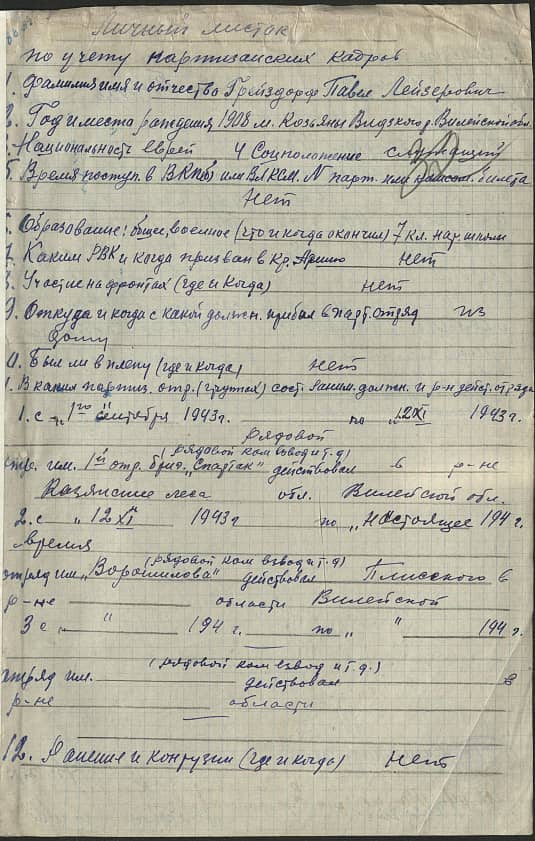 Личный листок
по учету партизанских кадров
1. Фамилия имя и отчество Грейздорф Павел Лейзерович
2. Год и место рождения 1908 м. Козьяны Видзского р. Вилейской обл.
Национальность еврей 4 Соцположение служащий
5. Время поступ. в ВКП(б) или ВЛКСМ. N парт. или комсом. билета
Нет
Образование: общее, военное (что и когда окончил) 7 кл. нар. школы
7. Каким РВК и когда призван в Кр. Армию нет
Участие на фронтах (где и когда) нет
9. Откуда и когда с какой должн. прибыл в парт. отряд из
дому
Был ли в плену (где и когда) нет
1. В каких партиз. отр. состоял заним. должн. и р-н дейст. отряда
1. с „1го" сентября 1943г. по „12 XI 1943г.
рядовой
(рядовой ком взвод и т.д)
отр. им. 1й отр. бриг. „Спартак" действовал в р-не
Казянские леса обл. Вилейской обл.
2. с „ 12 XI 1943г по „настоящее 194 г.
время
(рядовой ком взвод и т.д)
отряд им „Ворошилова" действовал Плисского в
р-не области Вилейской
3 с „ " 194 г. по „ " 194 г.
(рядовой ком взвод и т.д.)
отряд им. действовал в
р-не области
12. Ранения и контузии (где и когда) нет